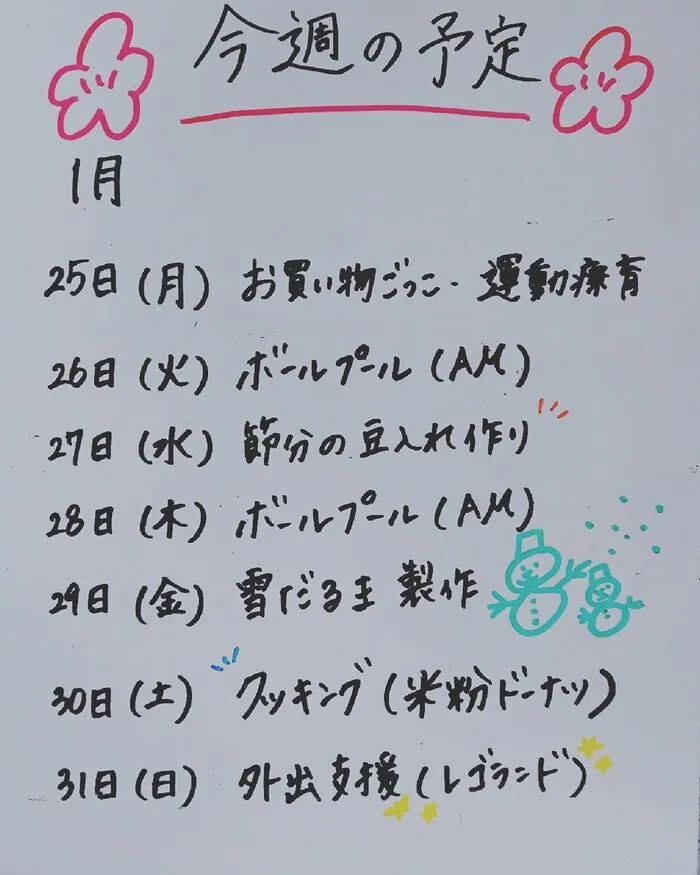 今週の予定
1月
25日(月) お買い物ごっこ・運動療育
26日(火) ボールプール(AM)
27日(水) 節分の豆入れ作り
28日(木) ボールプール(AM)
29日(金) 雪だるま製作
30日(土) クッキング(米粉ドーナツ)
31日(日) 外出支援(レゴランド)